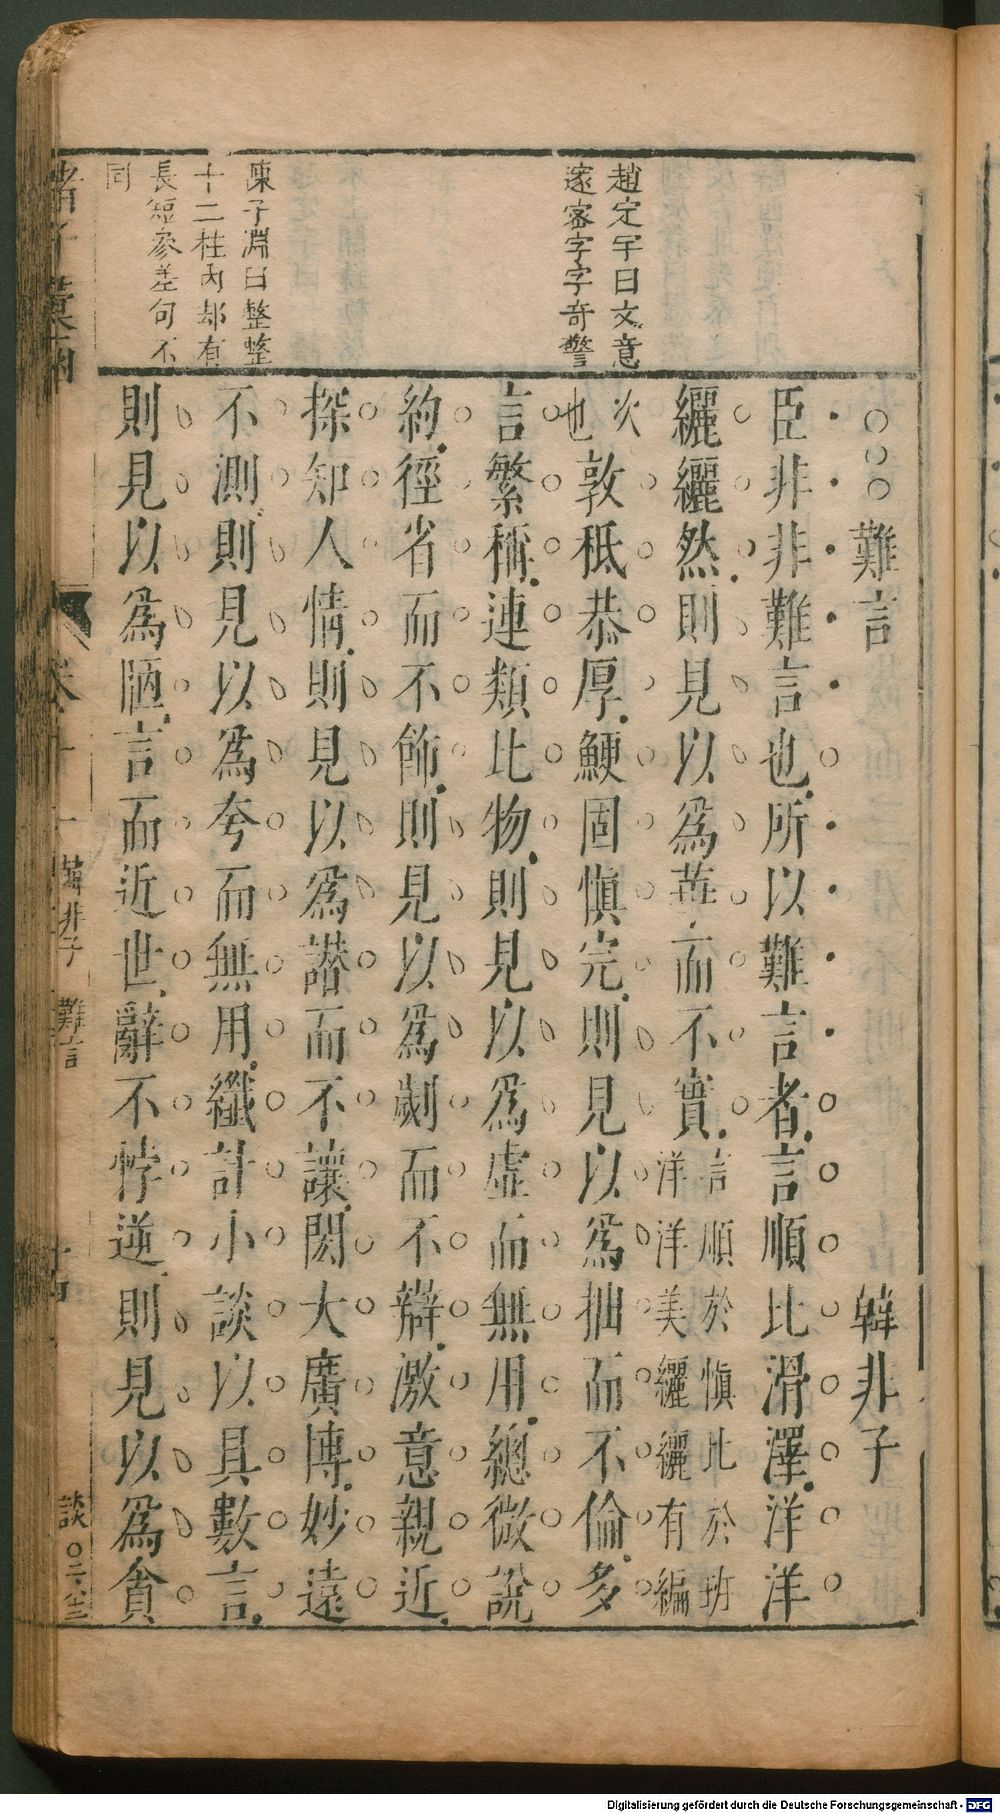 趙定宇曰文意
邃密字字奇警
陳子淵曰整整
十二柱內却有
長短參差句不
同
○○○難言 韓非子
臣非非難言也所以難言者言順比滑澤洋洋
纚纚然則見以為華而不實言順於慎比於班洋洋美纚纚有編
次也敦秪恭厚鯁固慎完則見以為拙而不倫多
言繁稱連類比物則見以為虛而無用總微說
約徑省而不飾則見以為劌而不辯激意親近
探知人情則見以為譖而不讓閎大廣博妙遠
不測則見以為夸而無用纖計小談以具數言
則見以為陋言而近世辭不悖逆則見以為貪
諸子彙函
卷十一 韓非子 難言
談
Digitalisierung gefördert durch die Deutsche Forschungsgemeinschaft - DFG